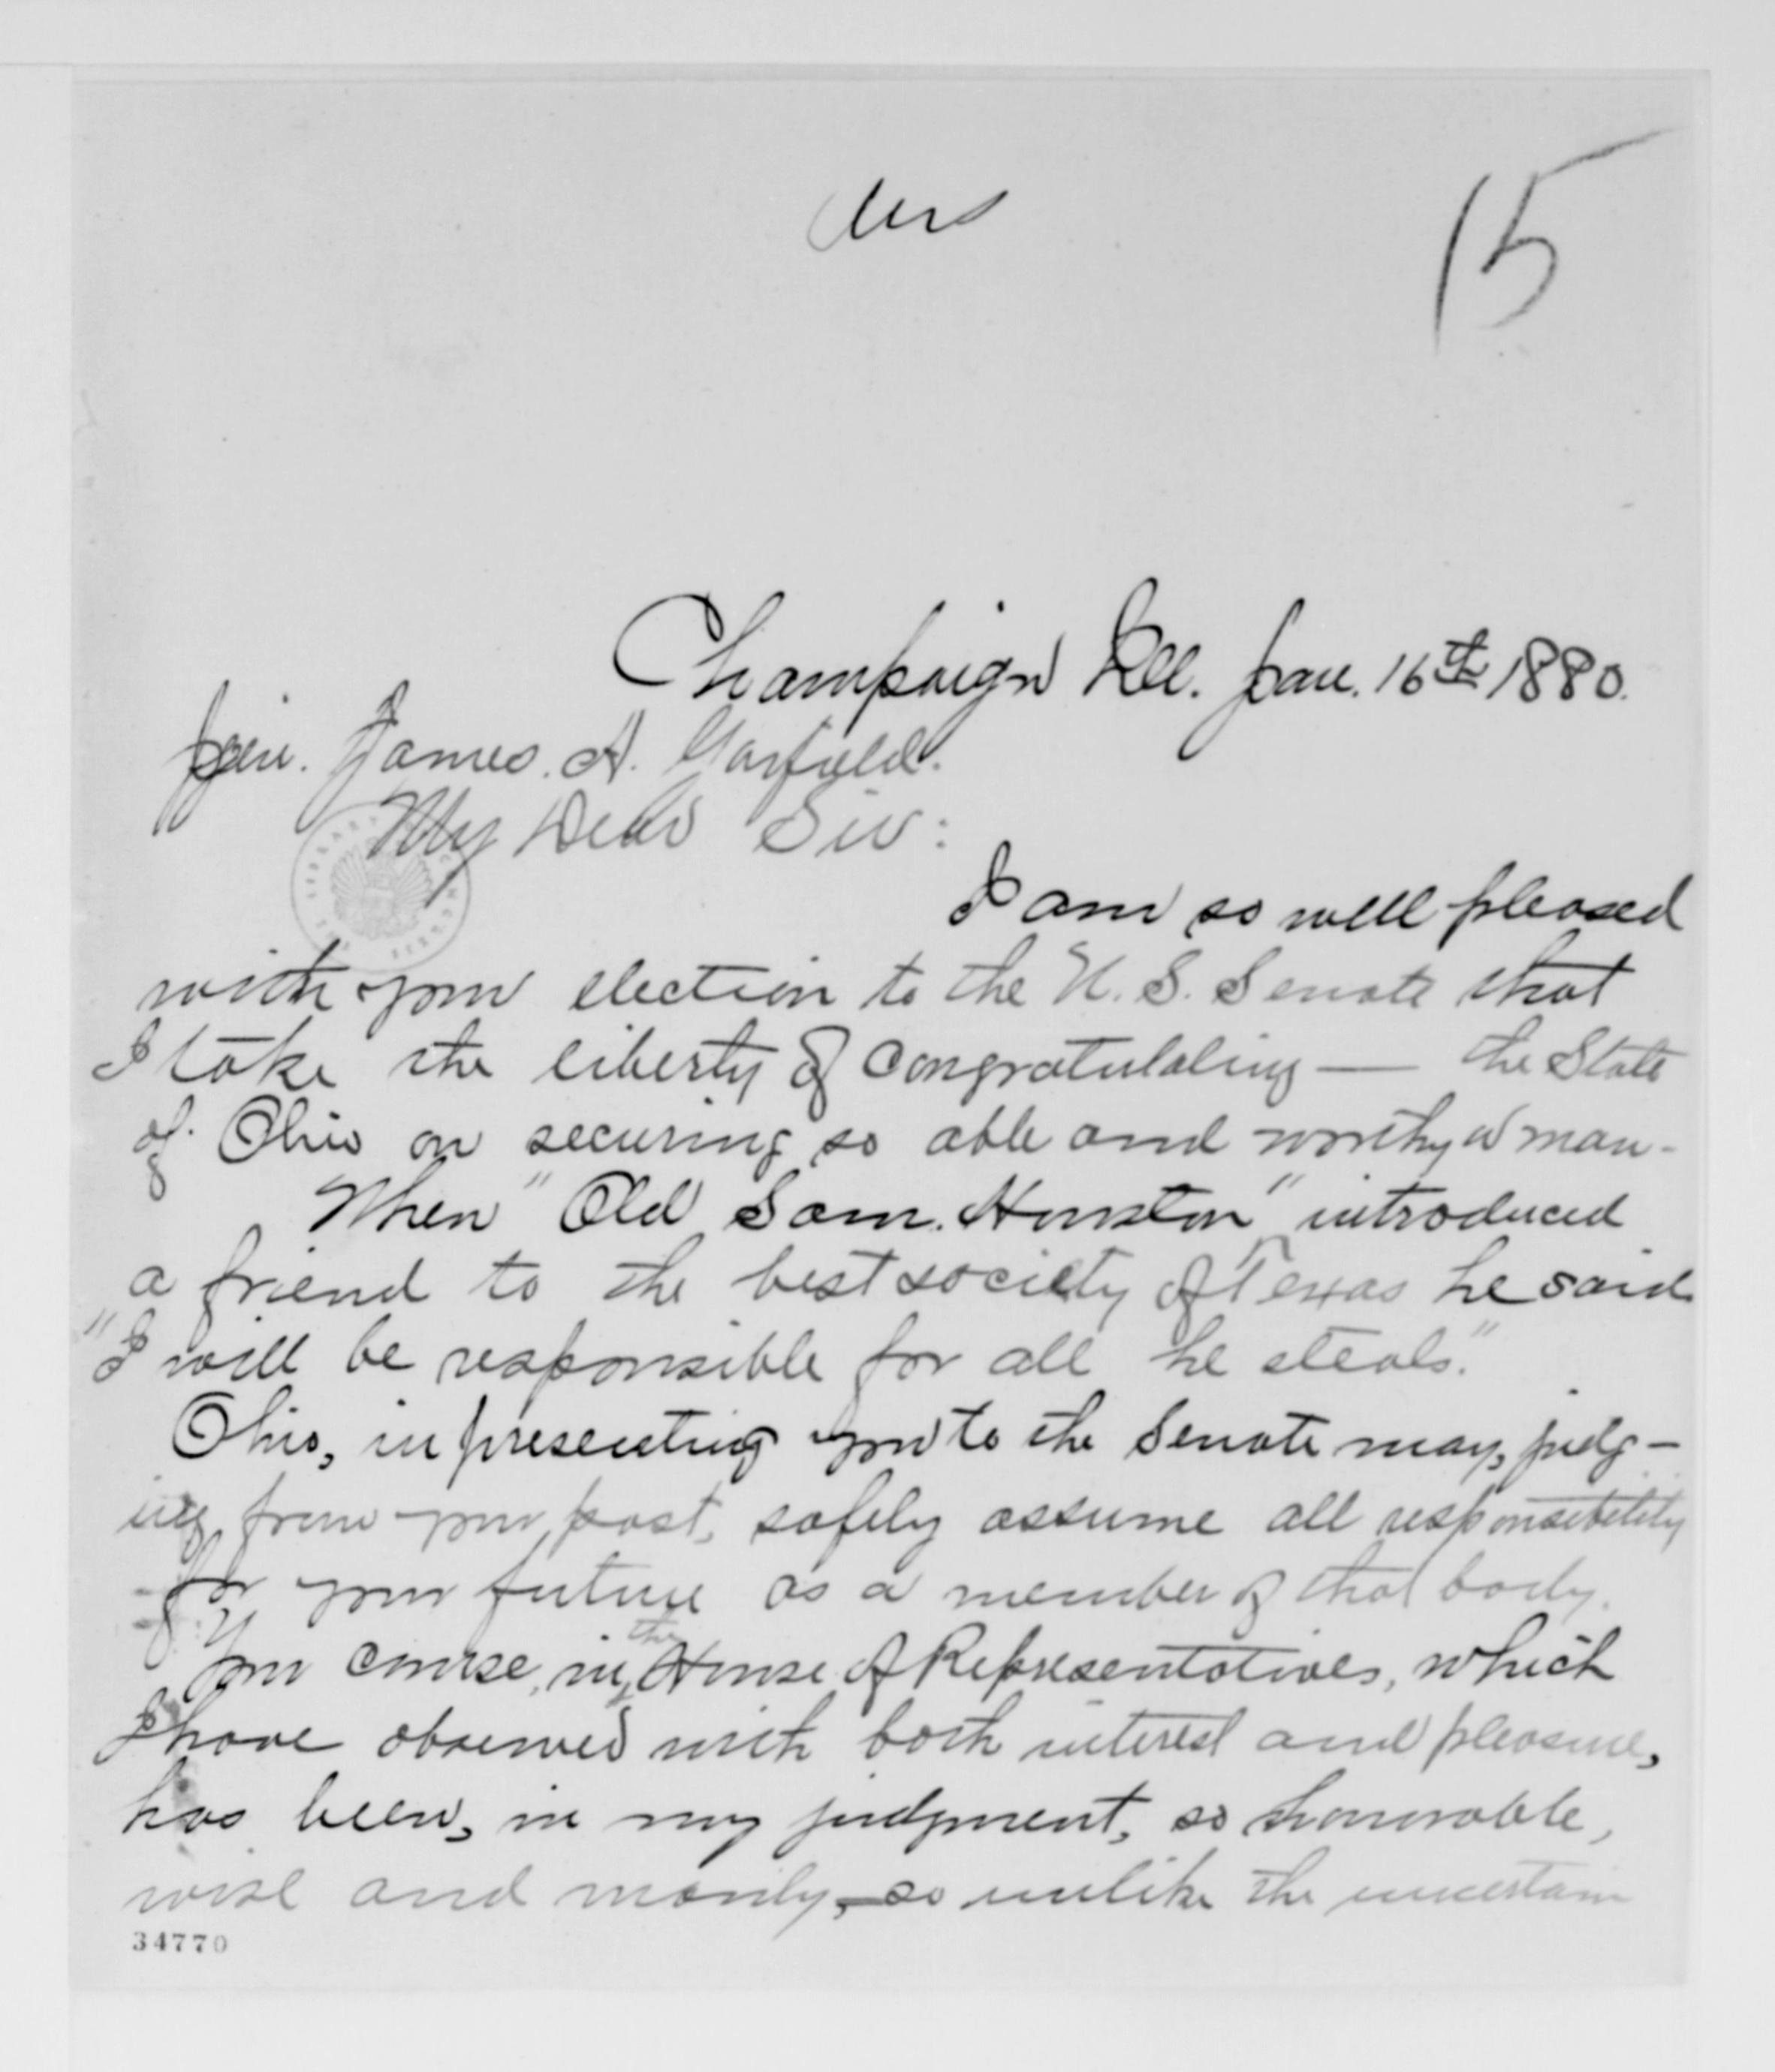 Ans
15
Champaign Ill. Jan. 16th 1880.
Gen. James. A. Garfield.
My Dear Sir:
I am so well pleased
with your election to the U. S. Senate that
I take the liberty of congratulating — the State
of Ohio on securing so able and worthy a man-
When "Old Sam. Houston" introduced
a friend to the best society of Texas he said
"I will be responsible for all he steals."
Ohio, in presenting you to the Senate may, judg-
ing from your past, safely assume all responsibility
for your future as a member of that body.
Your course, in the House of Representatives, which
I have observed with both interest and pleasure,
has been, in my judgment, so honorable,
wise and manly, — so unlike the uncertain
34770